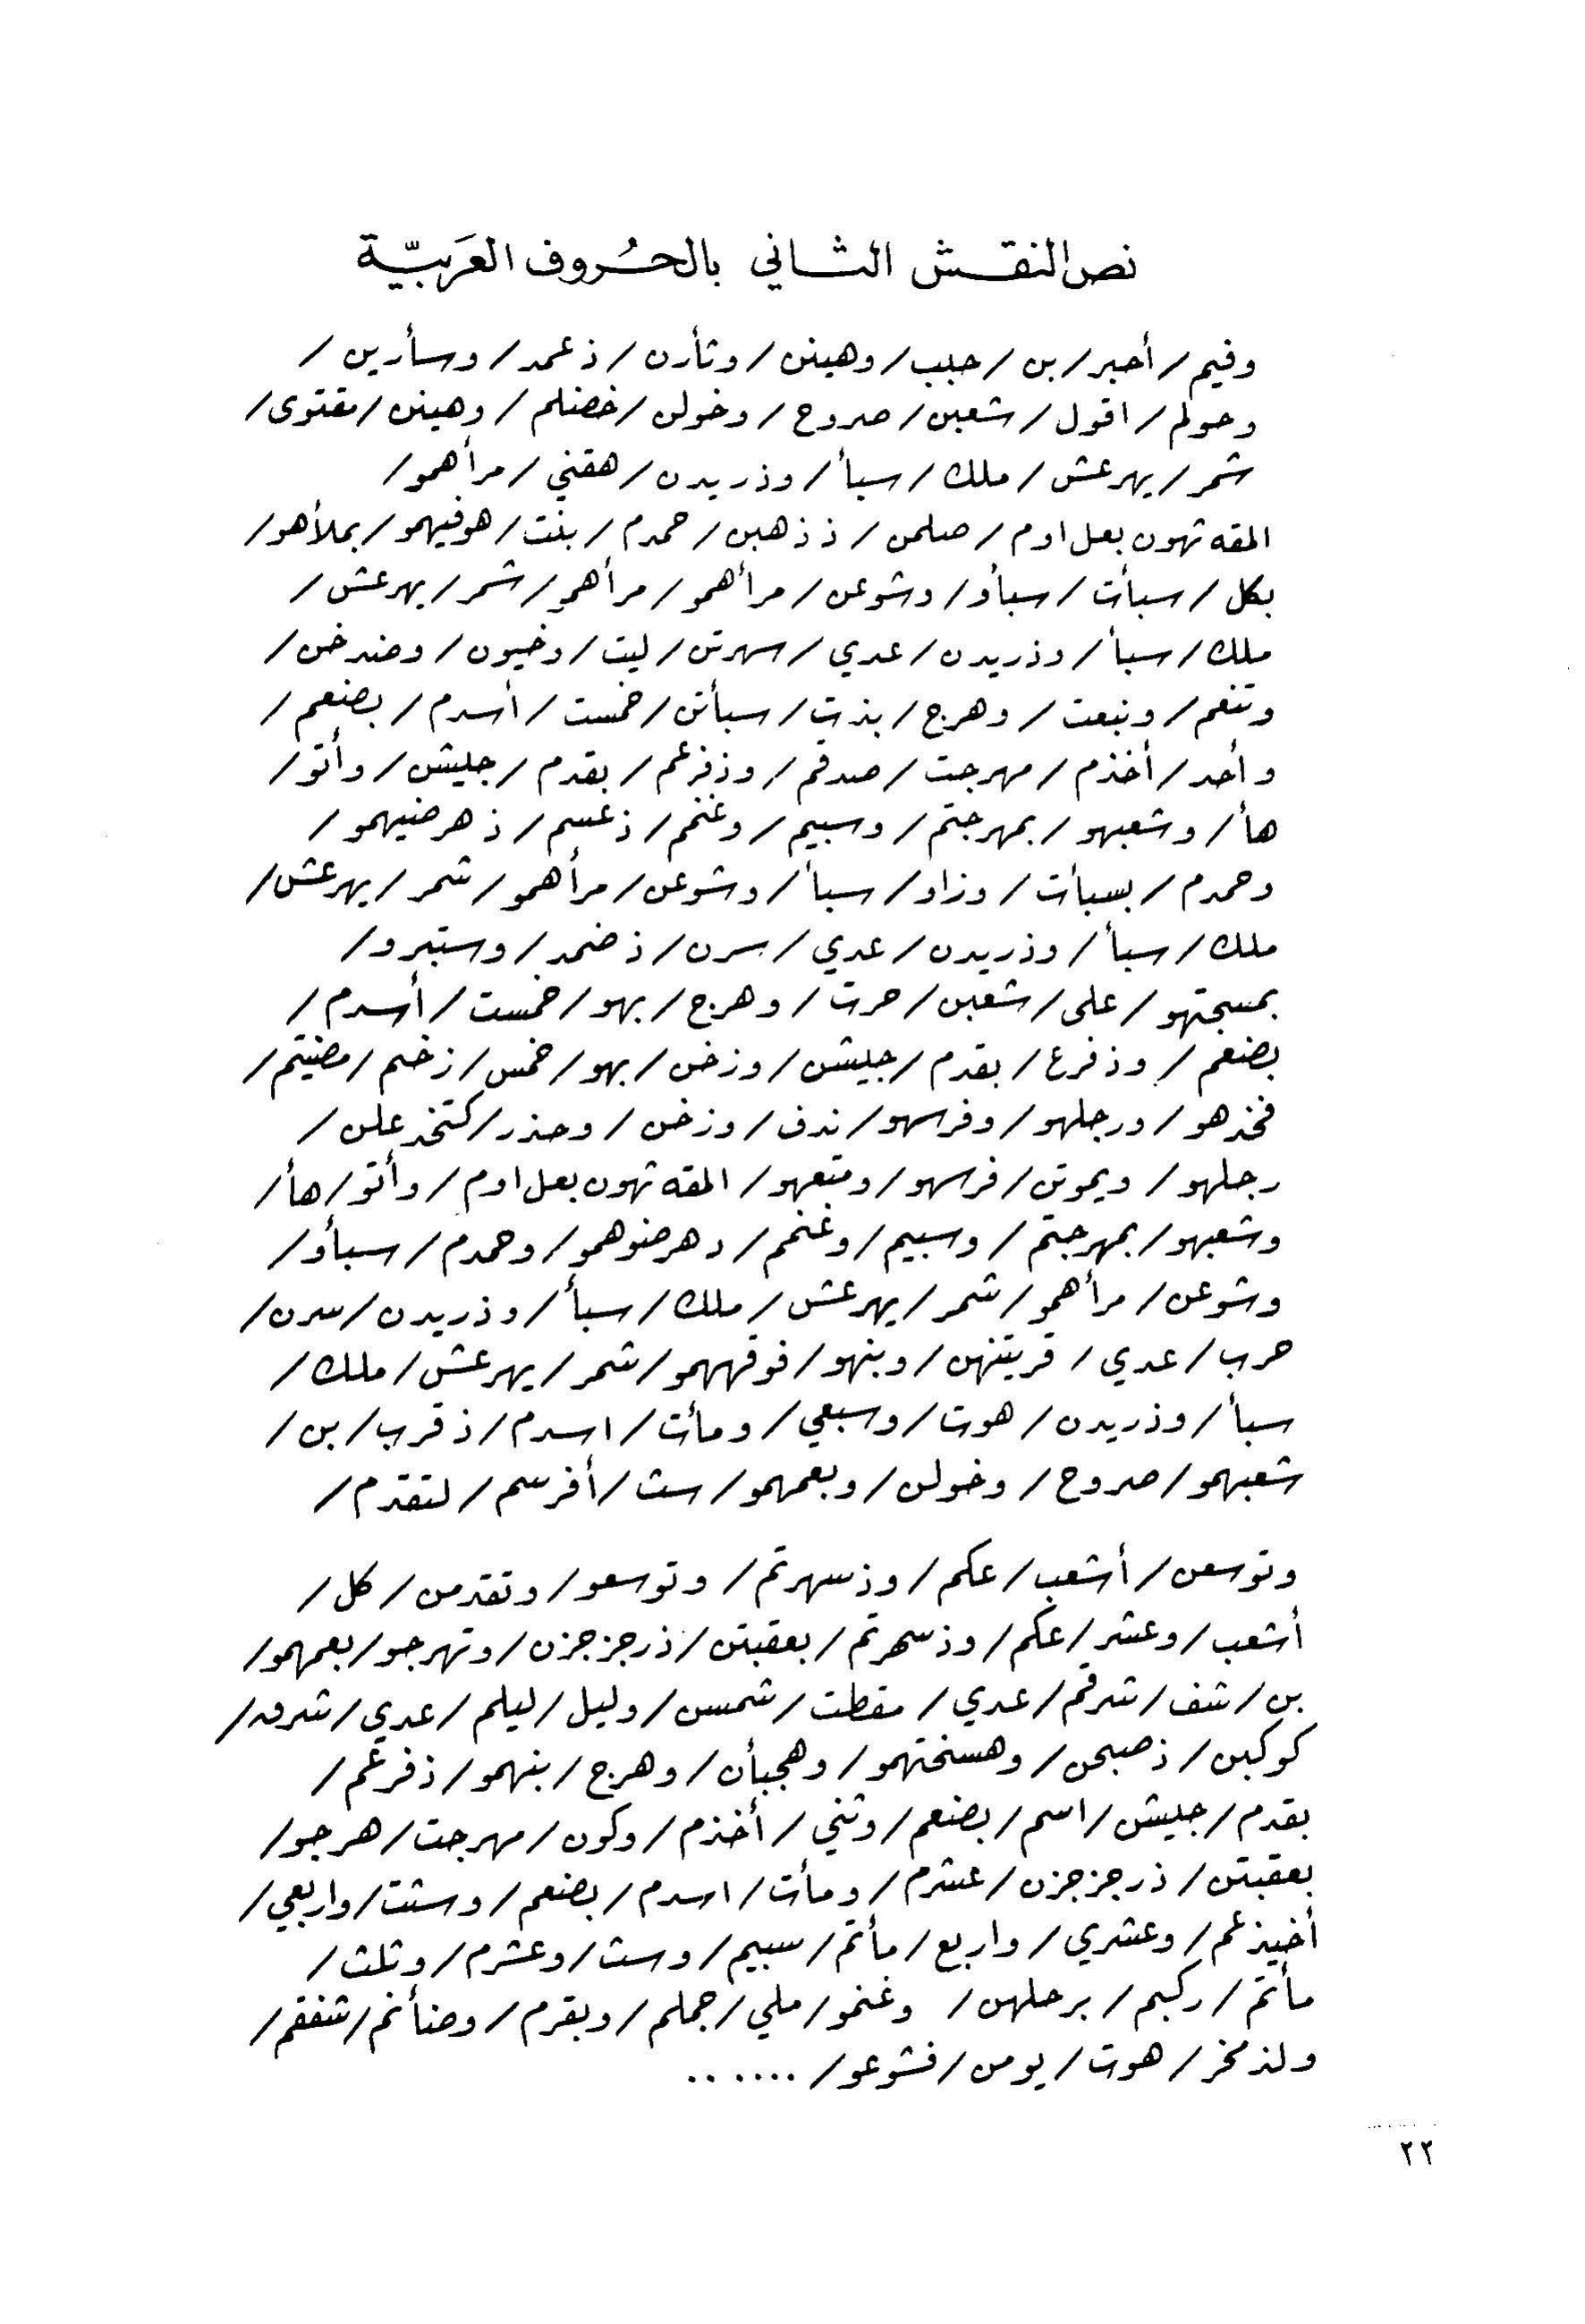 نص النقش الثاني بالحُروف العَربيّة
وفيم / أحبر / بن / حبب / وهينن / وثأرن / ذعمد / وسأرين /
وحولم / اقول / شعبن / صروح / وخولن / خضلم / وهينن / مقتوى /
شمر / يهرعش / ملك / سبأ / وذريدن / هقني / مرأهمو /
المقه ثهون بعل اوم / صلمن / ذذهبن / حمدم / بذت / هوفيهمو / بملأهو /
بكل / سبأت / سبأو / وشوعن / مرأهمو / مرأهمو / شمر / يهرعش /
ملك / سبأ / وذريدن / عدي / سهرتن / ليت / وخيون / وضدخن /
وتنعم / ونبعت / وهرج / بذت / سبأتن / خمست / أسدم / بضعم /
وأحد / أخذم / مهرجت / صدقم / وذفرعم / بقدم / جيشن / وأتو /
هأ / وشعبهو / بمهرجتم / وسبيم / وغنمم / ذعسم / ذهرضيهمو /
وحمدم / بسبأت / وزاو / سبأ / وشوعن / مرأهمو / شمر / يهرعش /
ملك / سبأ / وذريدن / عدي / سرن / ذضمد / وستبرو /
بمسجتهو / على / شعبن / حرت / وهرج / بهو / خمست / أسدم /
بضعم / وذفرع / بقدم / جيشن / وزخن / بهو / خمس / زخنم / مضيتم /
فخذهو / ورجلهو / وفرسهو / ندف / وزخن / وحذر / كتخذعلن /
رجلهو / ويموتن / فرسهو / ومتعهو / المقه ثهون بعل اوم / وأتو / هأ /
وشعبهو / بمهرجتم / وسبيم / وغنمم / دهرضوهمو / وحمدم / سبأو /
وشوعن / مرأهمو / شمر / يهرعش / ملك / سبأ / وذريدن / سردن /
حرب / عدي / قريتنهن / وبنهو / فوقههمو / شمر / يهرعش / ملك /
سبأ / وذريدن / هوت / وسبعي / ومأت / اسدم / ذقرب / بن /
شعبهمو / صروح / وخولن / وبعمهمو / ست / أفرسم / لتقدم /
وتوسعن / أشعب / عكم / وذسهرتم / وتوسعو / وتقدمن / كل /
أشعب / وعشر / عكم / وذسهرتم / بعقبتن / ذرجزجزن / وتهرجو / بعمهمو /
بن / شف / شرقم / عدي / مقطت / شمسن / وليل / ليلم / عدي / شرقه /
كوكبن / ذصبحن / وهسختهمو / وهجبأن / وهرج / بنهمو / ذفرعم /
بقدم / جيشن / اسم / بضعم / وثني / أخذم / وكون / مهرجت / هرجو /
بعقبتن / ذرجزجزن / عشرم / ومأت / اسدم / بضعم / وستت / واربعي /
أخيذعم / وعشري / واربع / مأتم / سبيم / وست / وعشرم / وثلث /
مأتم / ركبم / برحلهن / وغنمو / ملي / جملم / وبقرم / وضأنم / شفقم /
ولذمخر / هوت / يومن / فشوعو / .......
٢٢